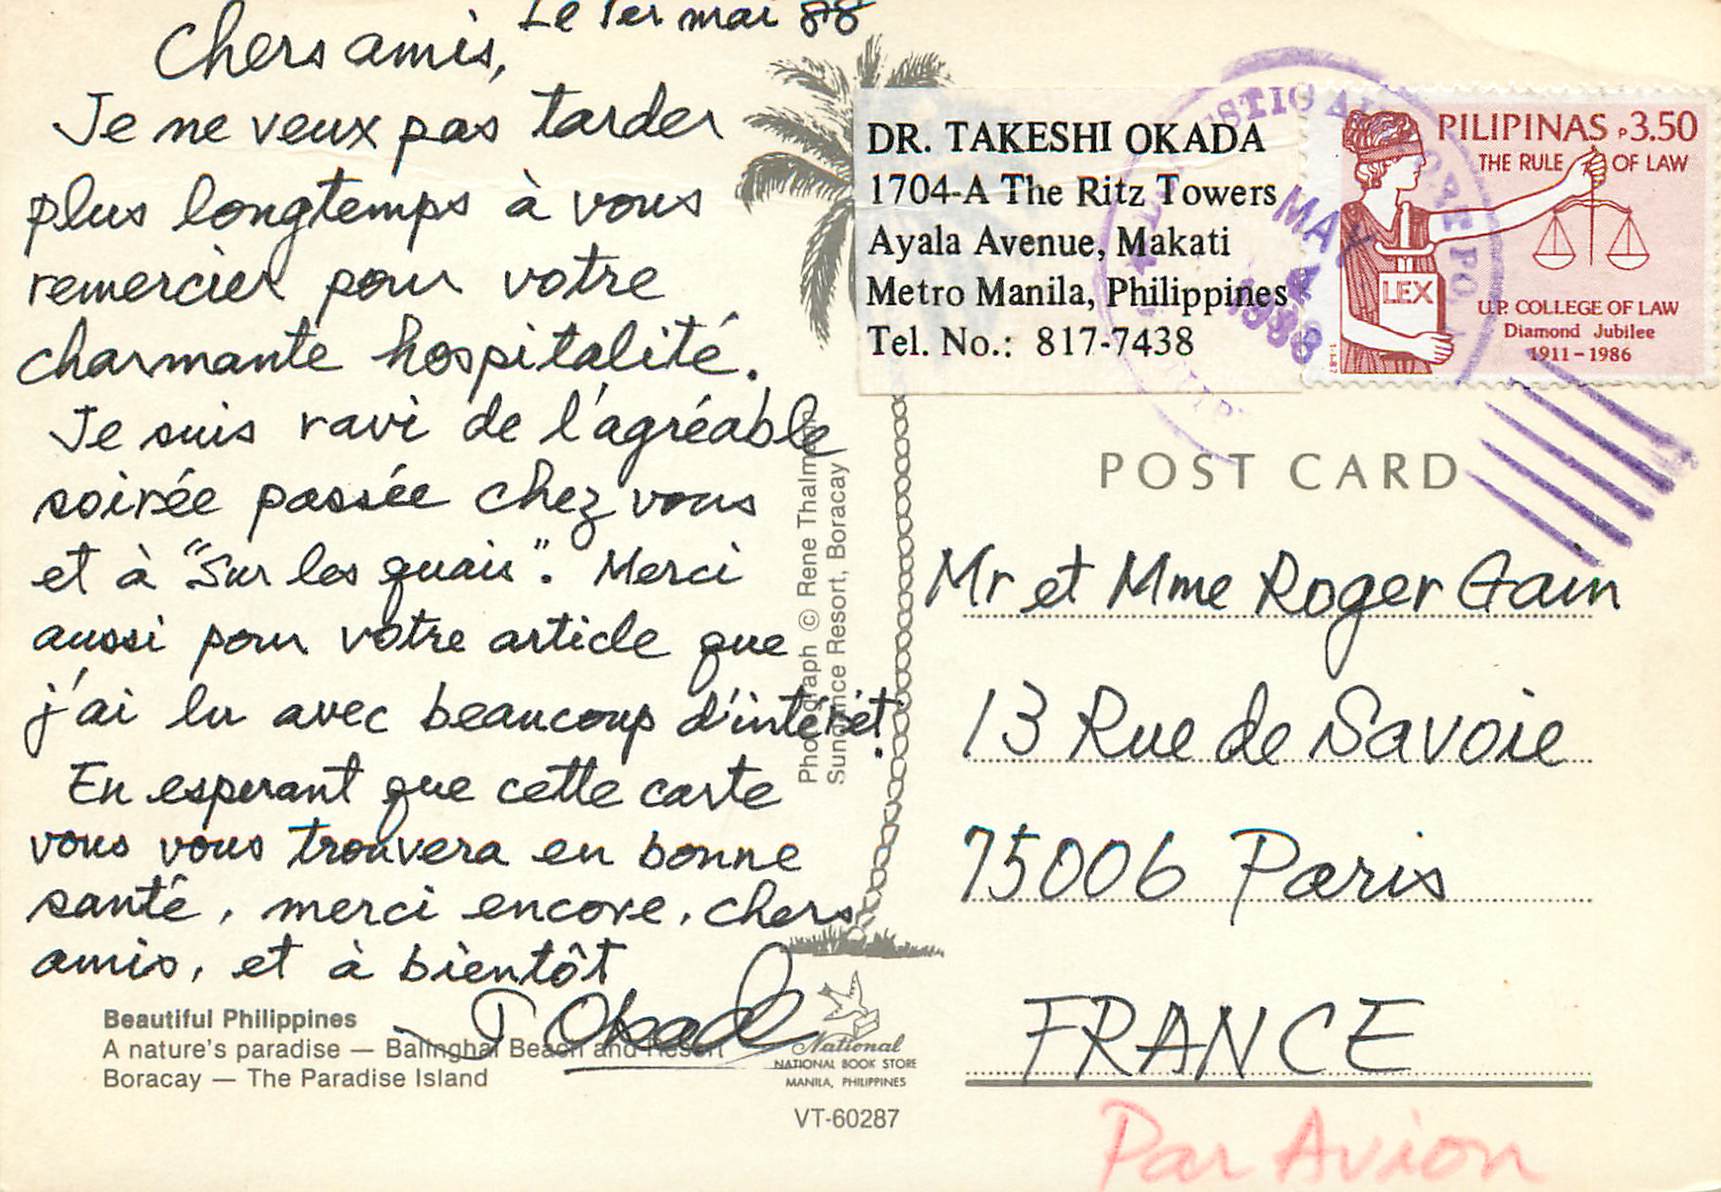 Le 1er mai 88
Chers amis,
Je ne veux pas tarder
plus longtemps à vous
remercier pour votre
charmante hospitalité.
Je suis ravi de l'agréable
soirée passée chez vous
et à "Sur les quais". Merci
aussi pour votre article que
j'ai lu avec beaucoup d'intérêt.
En esperant que cette carte
vous vous trouvera en bonne
santé, merci encore, chers
amis, et à bientôt
T Okada
Beautiful Philippines
A nature's paradise — Balinghai Beach and Resort
Boracay — The Paradise Island
Photograph © Rene Thalmann
Sundance Resort, Boracay
National
NATIONAL BOOK STORE
MANILA, PHILIPPINES
VT-60287
DR. TAKESHI OKADA
1704-A The Ritz Towers
Ayala Avenue, Makati
Metro Manila, Philippines
Tel. No.: 817-7438
PILIPINAS P3.50
THE RULE OF LAW
LEX
U.P. COLLEGE OF LAW
Diamond Jubilee
1911-1986
MAY
1988
POST CARD
Mr et Mme Roger Gain
13 Rue de Savoie
75006 Paris
FRANCE
Par Avion